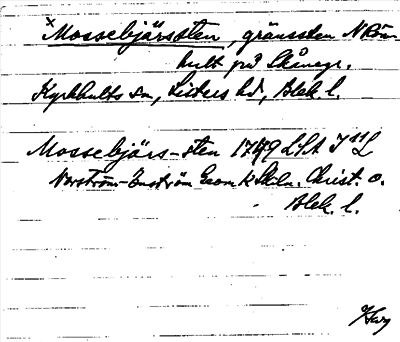 × Mossebjärsten, gränssten N Röm
hult på Skånegr.
Kyrkhults sn, Listers hd, Blek. l.
Mossebjärs-sten 1749 LSA J¹¹L
Norström-Enström Geom k Skån. Christ. o.
Blek. l.